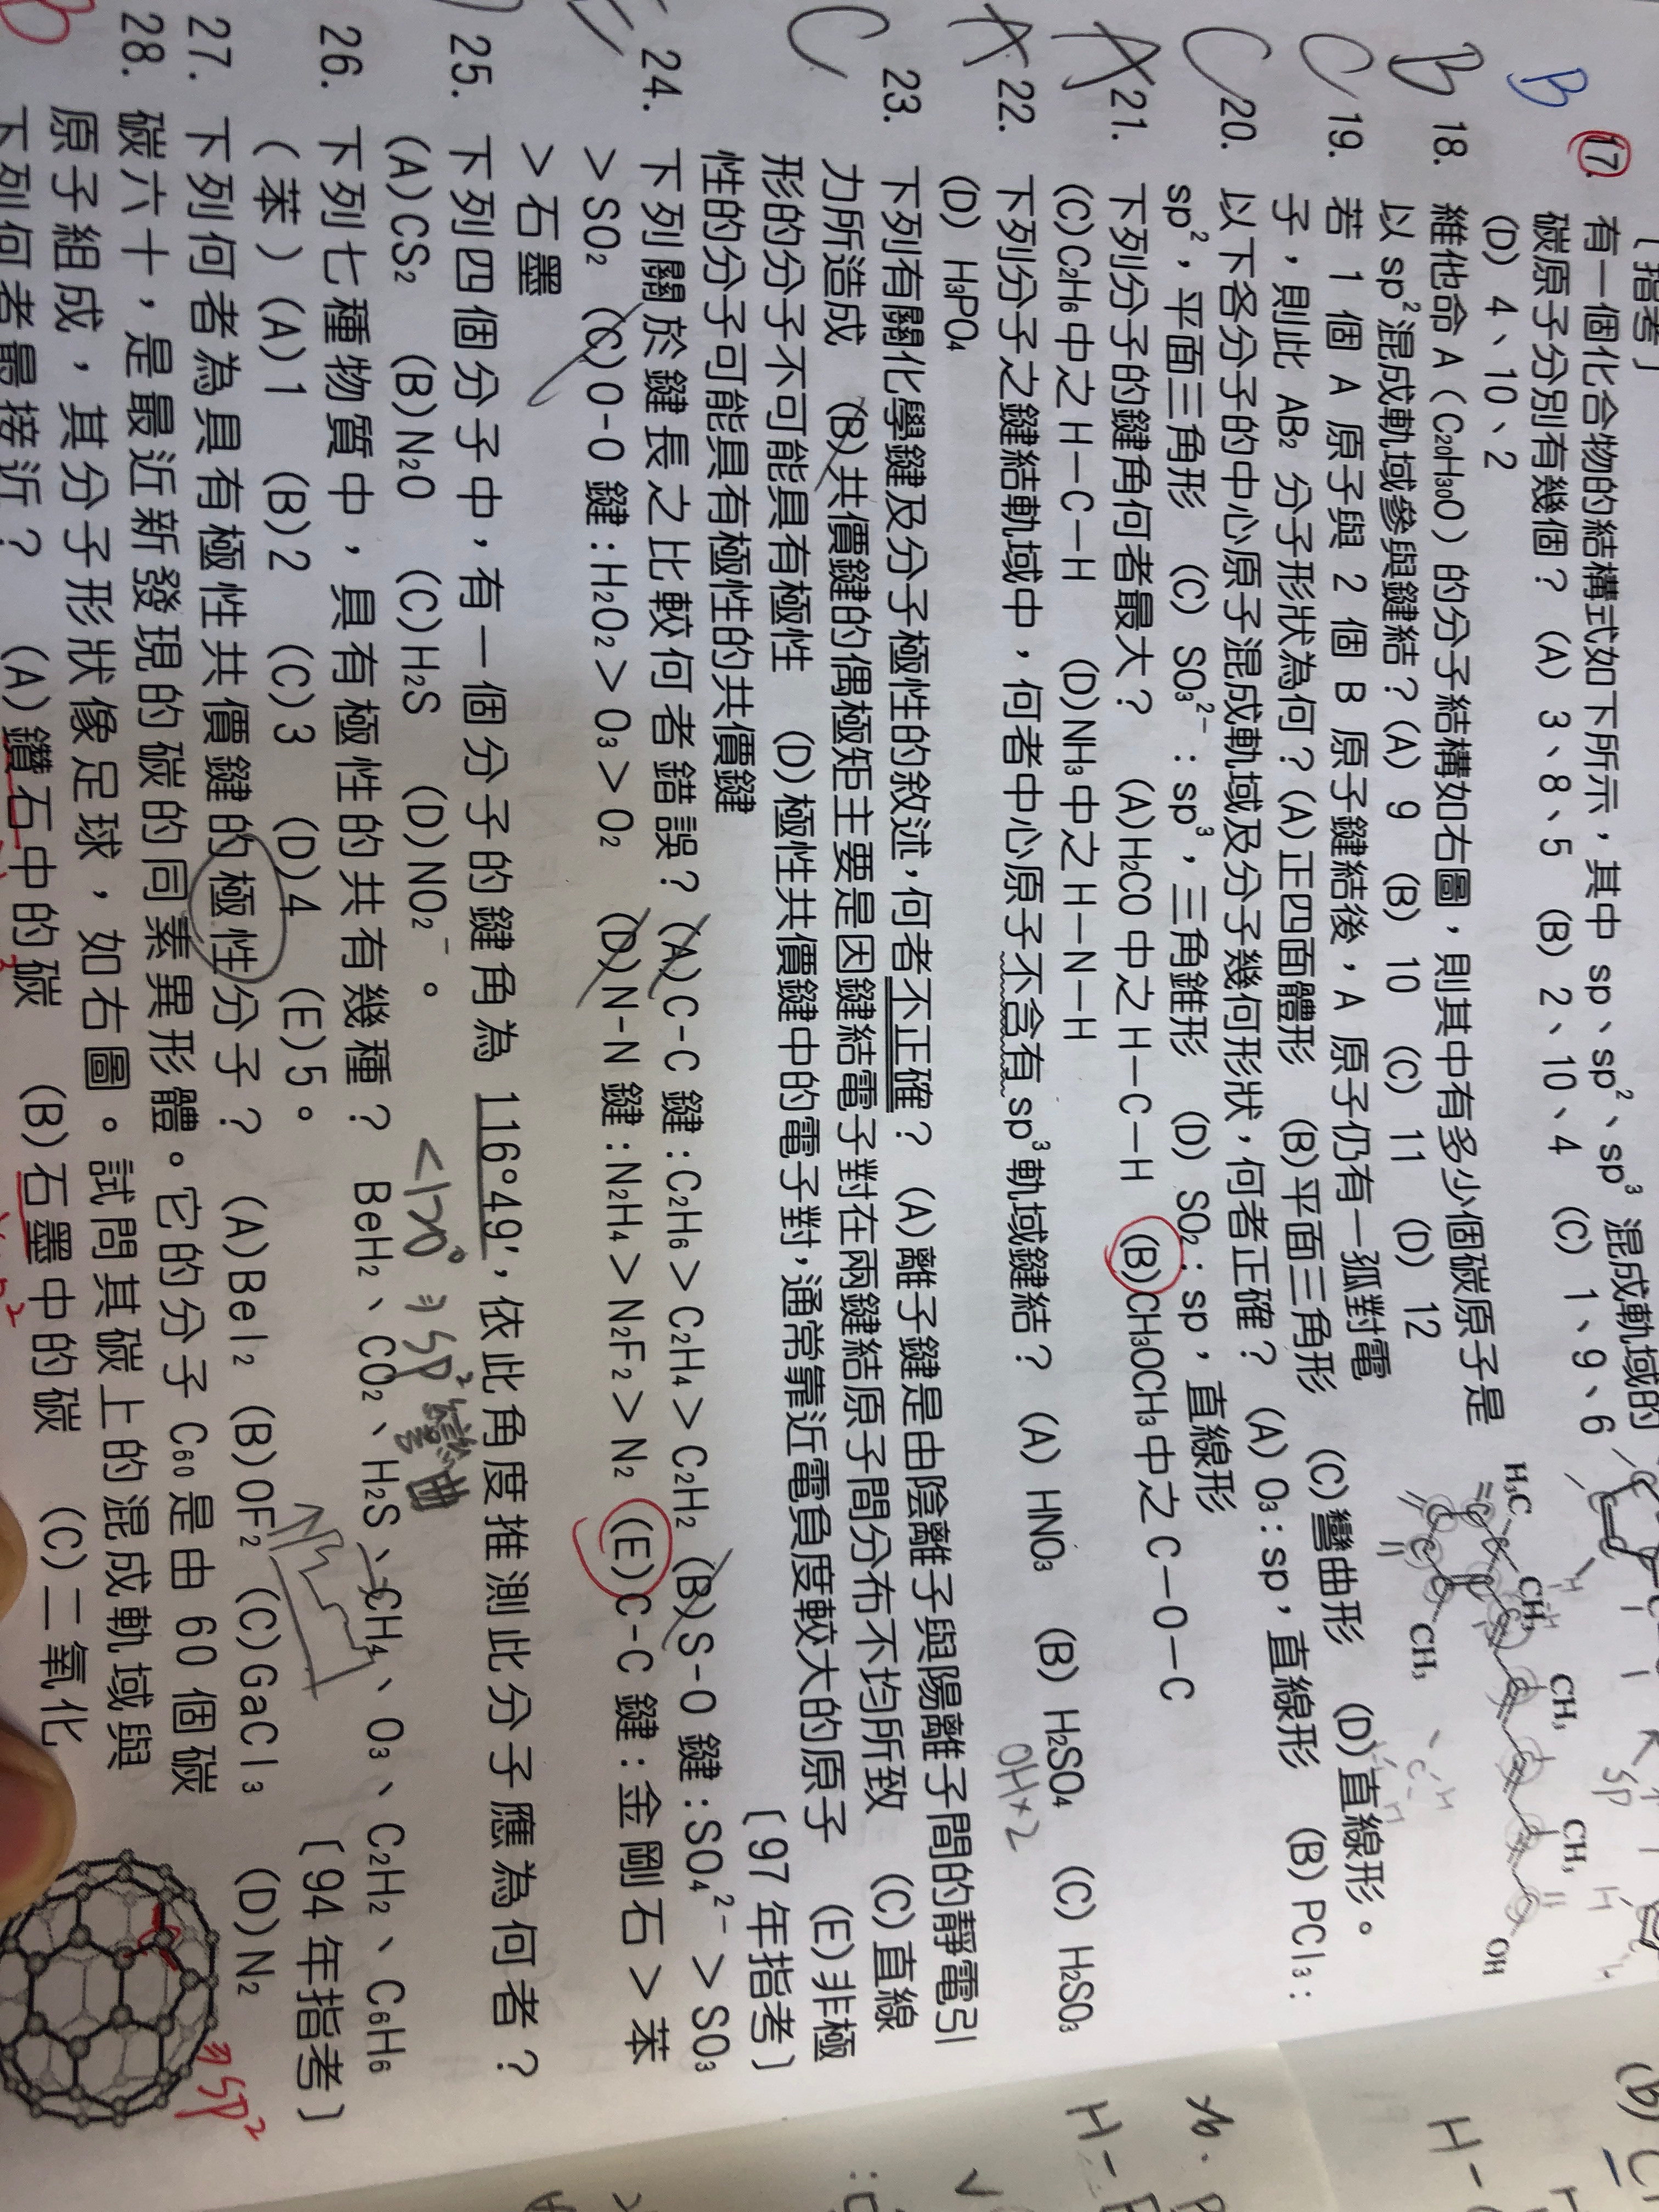 〔指考〕
B 17. 有一個化合物的結構式如下所示，其中 sp、sp²、sp³ 混成軌域的
碳原子分別有幾個？ (A) 3、8、5 (B) 2、10、4 (C) 1、9、6
(D) 4、10、2
B 18. 維他命 A（C₂₀H₃₀O）的分子結構如右圖，則其中有多少個碳原子是
以 sp² 混成軌域參與鍵結？(A) 9 (B) 10 (C) 11 (D) 12
H₃C CH₃ CH₃ CH₃ OH
CH₃
C 19. 若 1 個 A 原子與 2 個 B 原子鍵結後，A 原子仍有一孤對電
子，則此 AB₂ 分子形狀為何？(A)正四面體形 (B)平面三角形 (C)彎曲形 (D)直線形。
C 20. 以下各分子的中心原子混成軌域及分子幾何形狀，何者正確？ (A) O₃：sp，直線形 (B) PCl₃：
sp²，平面三角形 (C) SO₃²⁻：sp³，三角錐形 (D) SO₂：sp，直線形
A 21. 下列分子的鍵角何者最大？ (A)H₂CO 中之 H－C－H (B)CH₃OCH₃中之 C－O－C
(C)C₂H₆ 中之 H－C－H (D)NH₃中之 H－N－H
A 22. 下列分子之鍵結軌域中，何者中心原子不含有 sp³ 軌域鍵結？ (A) HNO₃ (B) H₂SO₄ (C) H₂SO₃
OH×2
(D) H₃PO₄
C 23. 下列有關化學鍵及分子極性的敘述，何者不正確？ (A)離子鍵是由陰離子與陽離子間的靜電引
力所造成 (B)共價鍵的偶極矩主要是因鍵結電子對在兩鍵結原子間分布不均所致 (C)直線
形的分子不可能具有極性 (D)極性共價鍵中的電子對，通常靠近電負度較大的原子 (E)非極
性的分子可能具有極性的共價鍵 〔97 年指考〕
24. 下列關於鍵長之比較何者錯誤？ (A)C-C 鍵：C₂H₆＞C₂H₄＞C₂H₂ (B)S-O 鍵：SO₄²⁻＞SO₃
＞SO₂ (C)O-O 鍵：H₂O₂＞O₃＞O₂ (D)N-N 鍵：N₂H₄＞N₂F₂＞N₂ (E)C-C 鍵：金剛石＞苯
＞石墨
25. 下列四個分子中，有一個分子的鍵角為 116°49′，依此角度推測此分子應為何者？
(A)CS₂ (B)N₂O (C)H₂S (D)NO₂⁻。
<120° ⇒ sp² 彎曲
26. 下列七種物質中，具有極性的共有幾種？ BeH₂、CO₂、H₂S、CH₄、O₃、C₂H₂、C₆H₆
（苯）(A)1 (B)2 (C)3 (D)4 (E)5。 〔94 年指考〕
27. 下列何者為具有極性共價鍵的極性分子？ (A)BeI₂ (B)OF₂ (C)GaCl₃ (D)N₂
28. 碳六十，是最近新發現的碳的同素異形體。它的分子 C₆₀ 是由 60 個碳
原子組成，其分子形狀像足球，如右圖。試問其碳上的混成軌域與
下列何者最接近？ (A)鑽石中的碳 (B)石墨中的碳 (C)二氧化
⇒ sp²